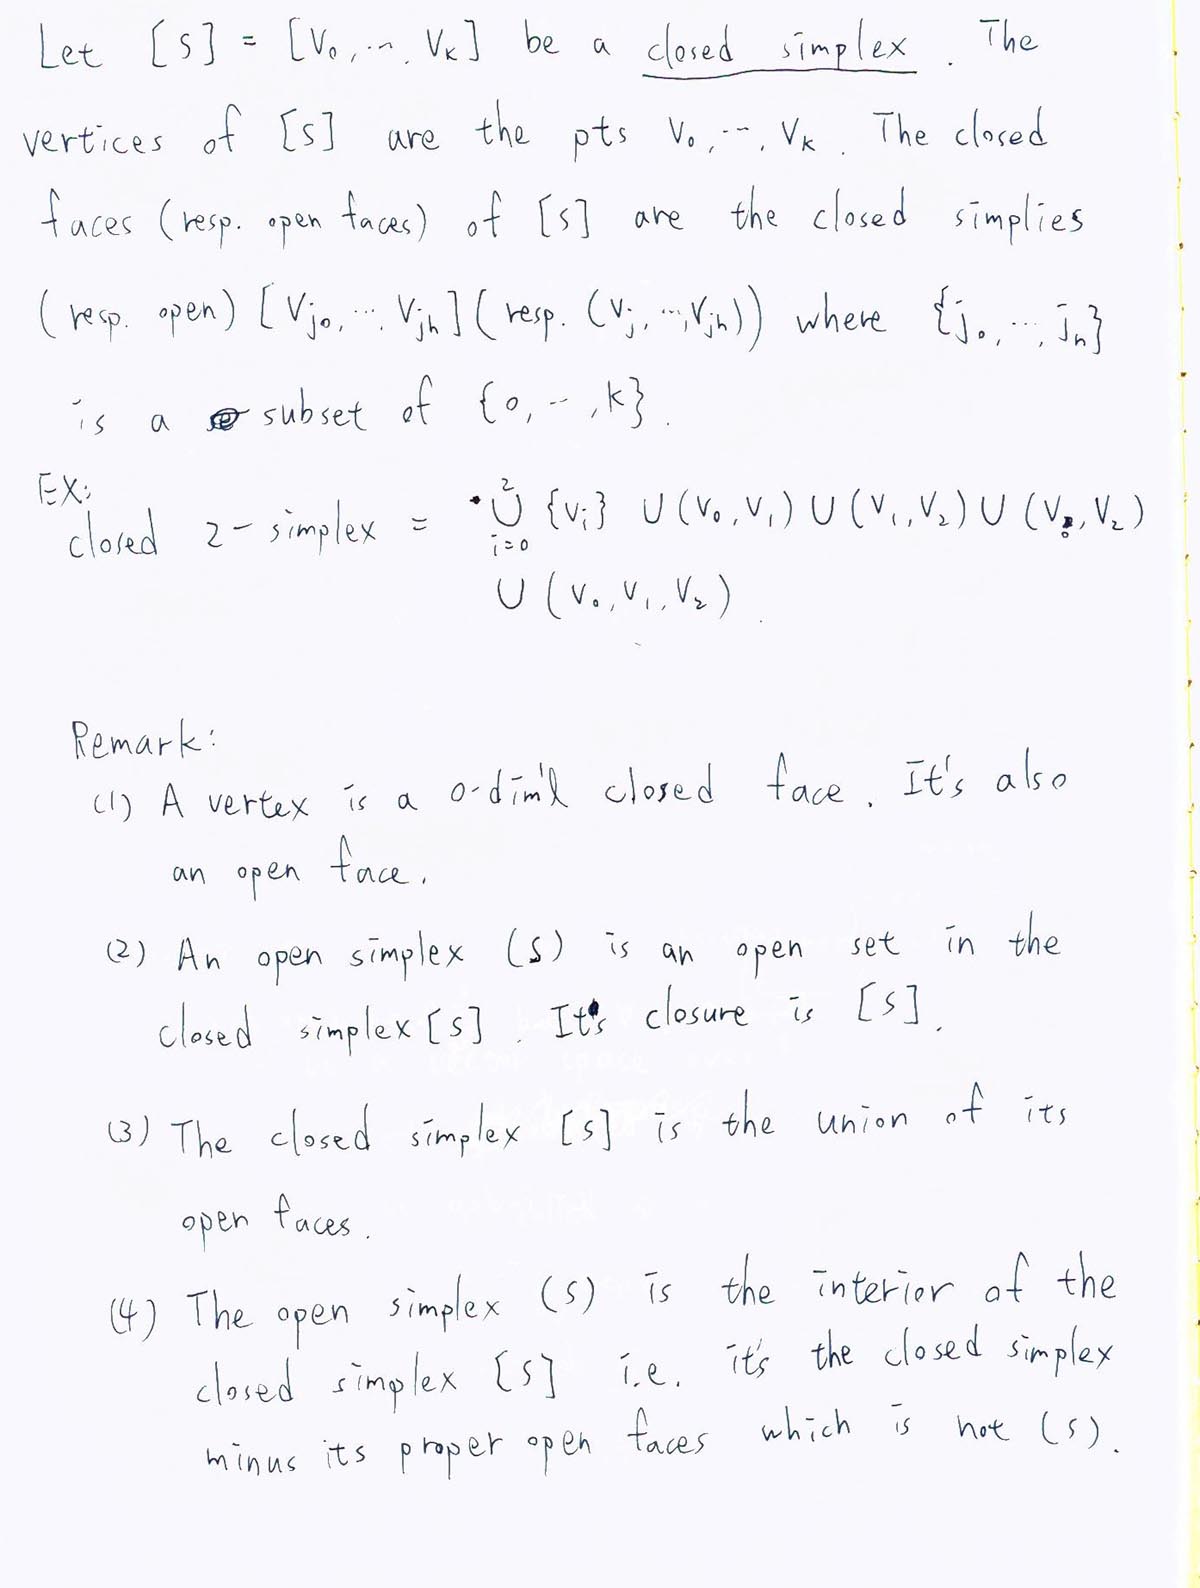 Let [s] = [v₀, ..., vₖ] be a closed simplex. The
vertices of [s] are the pts v₀, ..., vₖ. The closed
faces (resp. open faces) of [s] are the closed simplies
(resp. open) [vj₀, ..., vjₕ] (resp. (vj, ..., vjₕ)) where {j₀, ..., jₕ}
is a subset of {0, ..., k}.
EX:
closed 2-simplex = ∪̇ i=0 2 {vᵢ} ∪ (v₀, v₁) ∪ (v₁, v₂) ∪ (v₀, v₂)
∪ (v₀, v₁, v₂).
Remark:
(1) A vertex is a 0-dim'l closed face. It's also
an open face.
(2) An open simplex (s) is an open set in the
closed simplex [s]. Its closure is [s].
(3) The closed simplex [s] is the union of its
open faces.
(4) The open simplex (s) is the interior of the
closed simplex [s] i.e. it's the closed simplex
minus its proper open faces which is not (s).